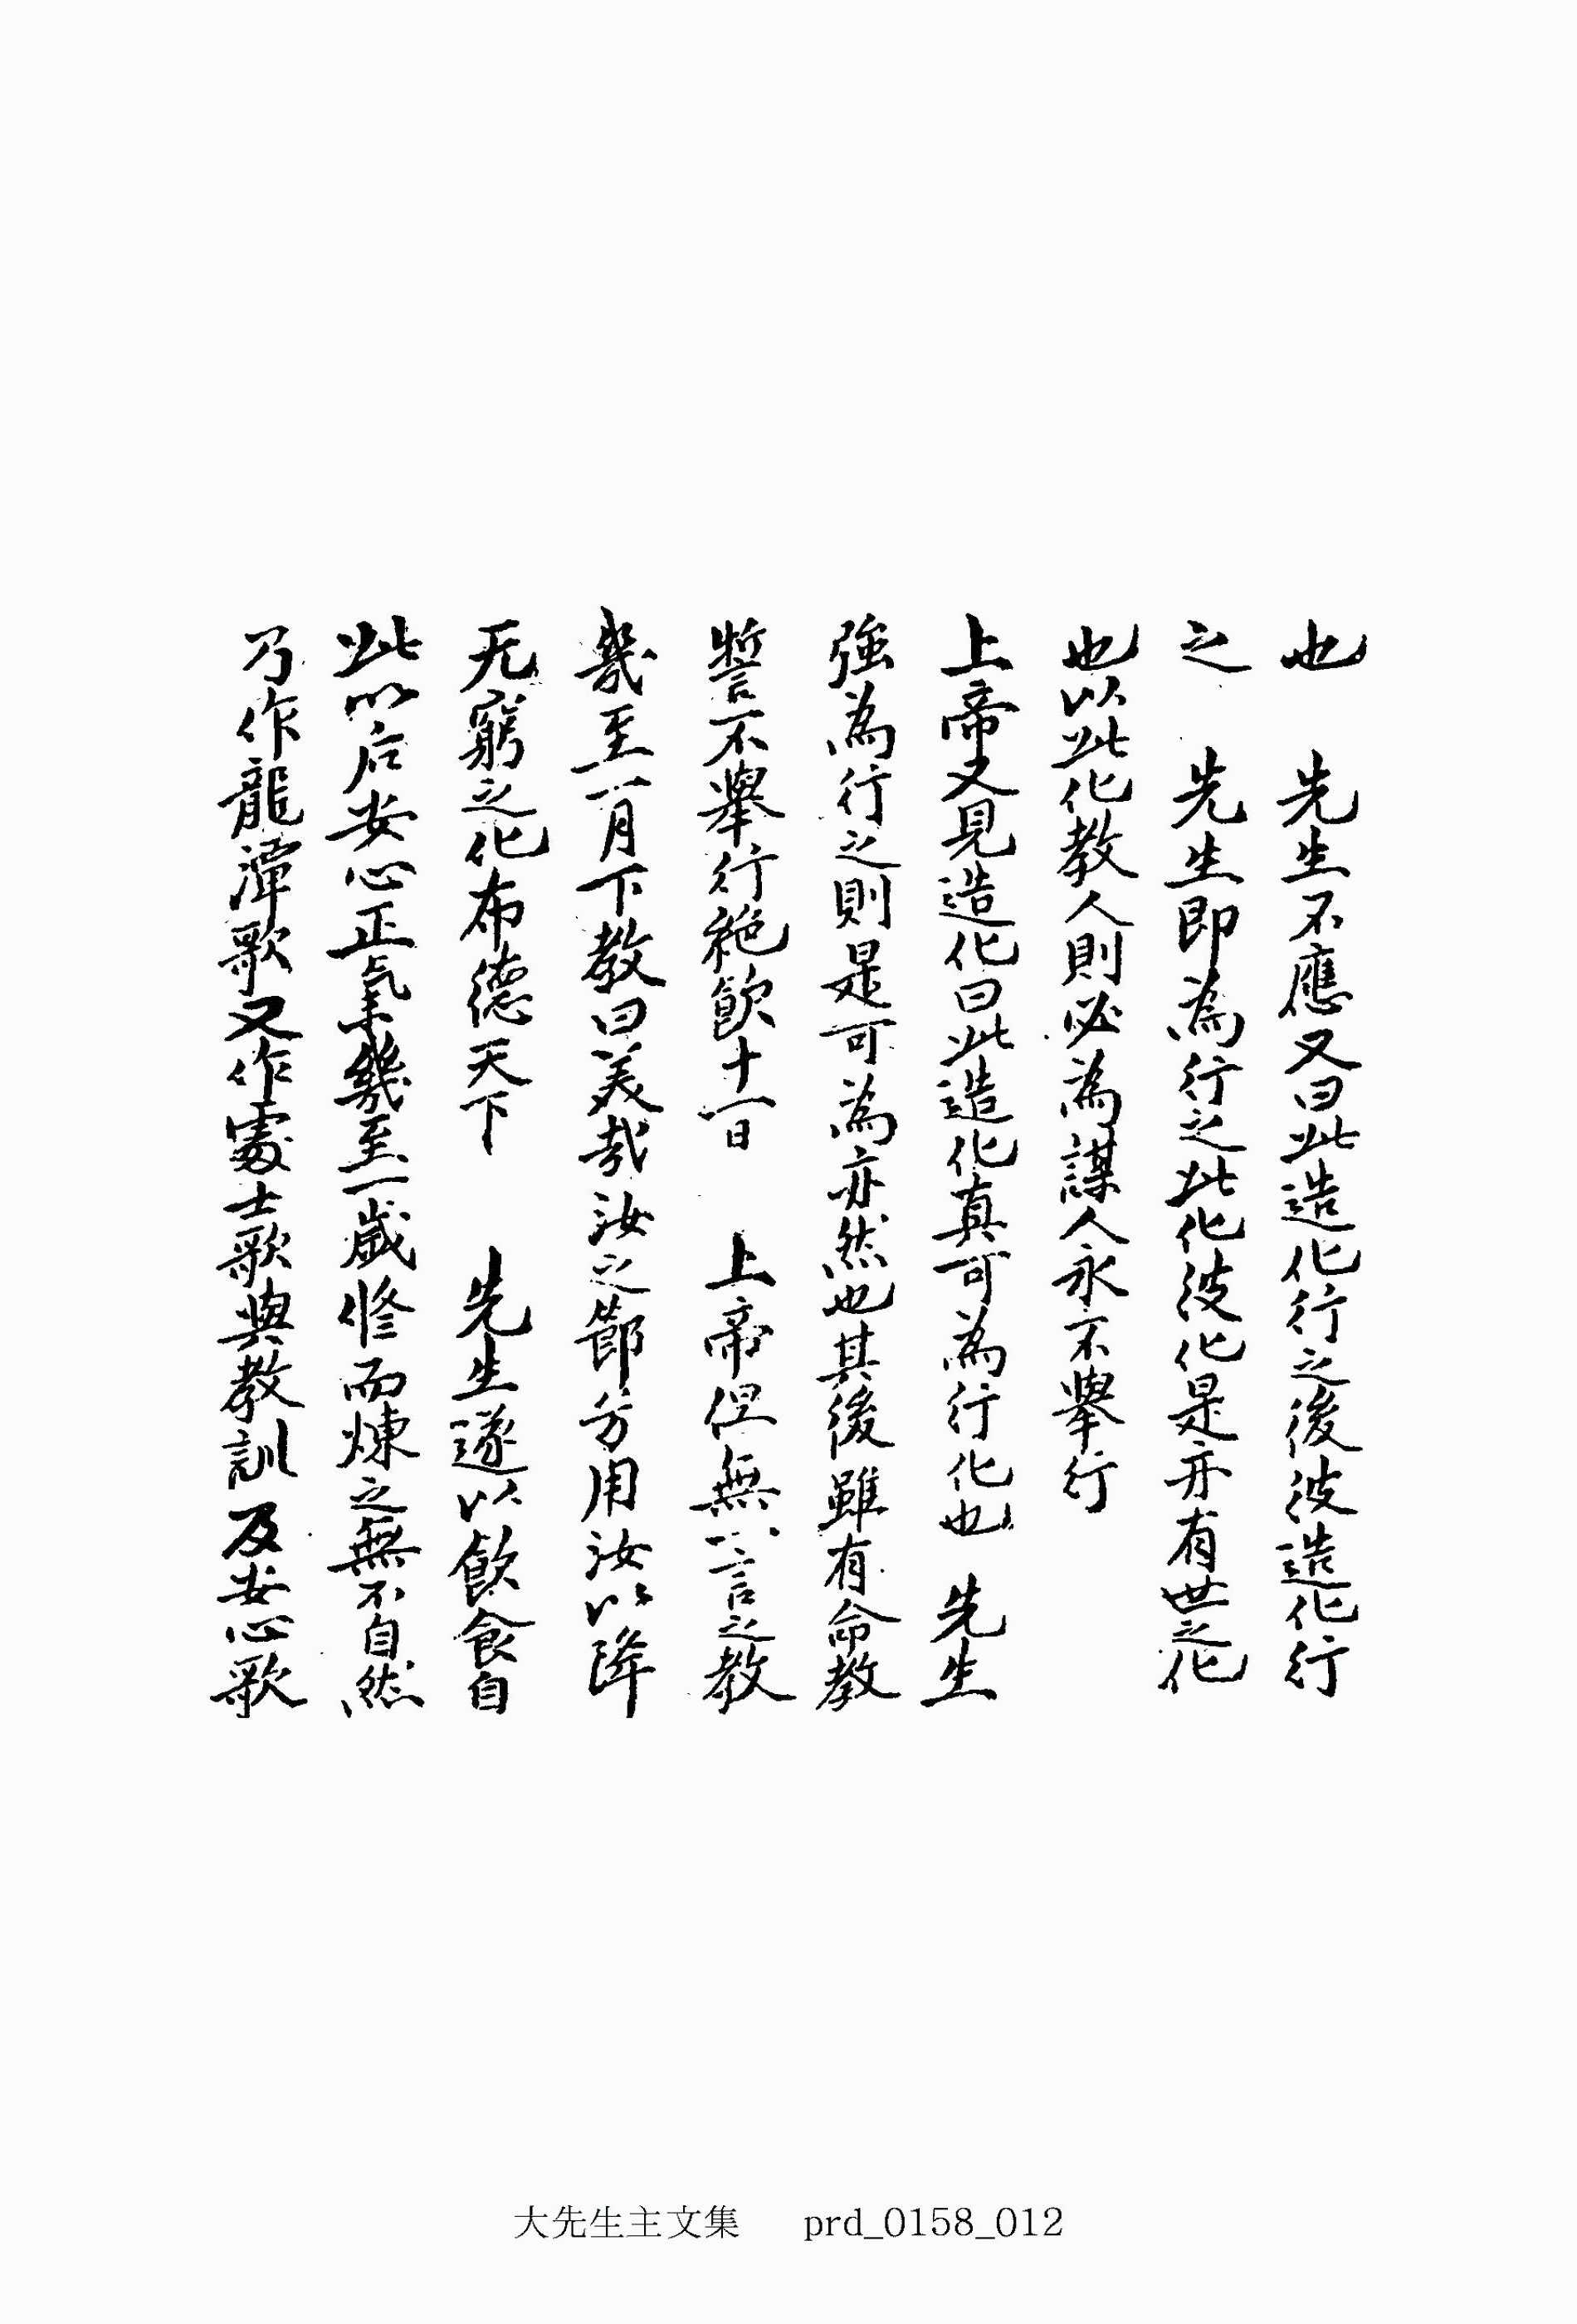 也　先生不應又曰此造化行之後彼造化行
之　先生即為行之此化彼化是亦有世之化
也以此化教人則必為謀人永不舉行
上帝又見造化曰此造化真可為行化也　先生
強為行之則是可為亦然也其後雖有命教
誓不舉行絶飮十一日　上帝但無一言之教
幾至一月下教曰美哉汝之節方用汝以降
无窮之化布德天下　先生遂以飮食自
此以后安心正氣幾至一歲修而煉之無不自然
乃作龍潭歌又作處士歌與教訓及安心歌
大先生主文集　prd_0158_012